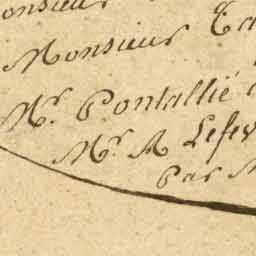 Monsieur
Monsieur
Mr. Pontallié
Mr. A Lefev
Par M